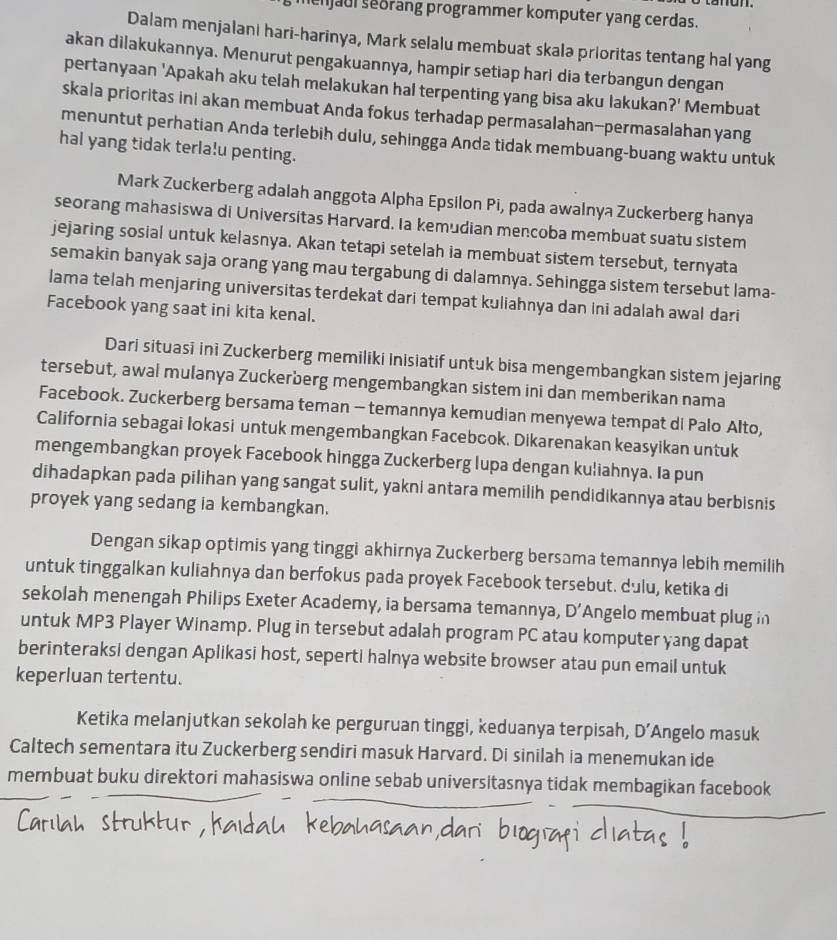 menjadi seorang programmer komputer yang cerdas.
Dalam menjalani hari-harinya, Mark selalu membuat skala prioritas tentang hal yang
akan dilakukannya. Menurut pengakuannya, hampir setiap hari dia terbangun dengan
pertanyaan 'Apakah aku telah melakukan hal terpenting yang bisa aku lakukan?' Membuat
skala prioritas ini akan membuat Anda fokus terhadap permasalahan-permasalahan yang
menuntut perhatian Anda terlebih dulu, sehingga Anda tidak membuang-buang waktu untuk
hal yang tidak terlalu penting.
Mark Zuckerberg adalah anggota Alpha Epsilon Pi, pada awalnya Zuckerberg hanya
seorang mahasiswa di Universitas Harvard. Ia kemudian mencoba membuat suatu sistem
jejaring sosial untuk kelasnya. Akan tetapi setelah ia membuat sistem tersebut, ternyata
semakin banyak saja orang yang mau tergabung di dalamnya. Sehingga sistem tersebut lama-
lama telah menjaring universitas terdekat dari tempat kuliahnya dan ini adalah awal dari
Facebook yang saat ini kita kenal.
Dari situasi ini Zuckerberg memiliki inisiatif untuk bisa mengembangkan sistem jejaring
tersebut, awal mulanya Zuckerberg mengembangkan sistem ini dan memberikan nama
Facebook. Zuckerberg bersama teman – temannya kemudian menyewa tempat di Palo Alto,
California sebagai lokasi untuk mengembangkan Facebook. Dikarenakan keasyikan untuk
mengembangkan proyek Facebook hingga Zuckerberg lupa dengan kuliahnya. Ia pun
dihadapkan pada pilihan yang sangat sulit, yakni antara memilih pendidikannya atau berbisnis
proyek yang sedang ia kembangkan.
Dengan sikap optimis yang tinggi akhirnya Zuckerberg bersama temannya lebih memilih
untuk tinggalkan kuliahnya dan berfokus pada proyek Facebook tersebut. dulu, ketika di
sekolah menengah Philips Exeter Academy, ia bersama temannya, D'Angelo membuat plug in
untuk MP3 Player Winamp. Plug in tersebut adalah program PC atau komputer yang dapat
berinteraksi dengan Aplikasi host, seperti halnya website browser atau pun email untuk
keperluan tertentu.
Ketika melanjutkan sekolah ke perguruan tinggi, keduanya terpisah, D'Angelo masuk
Caltech sementara itu Zuckerberg sendiri masuk Harvard. Di sinilah ia menemukan ide
membuat buku direktori mahasiswa online sebab universitasnya tidak membagikan facebook
Carilah struktur, kaidah kebahasaan, dari biografi diatas!